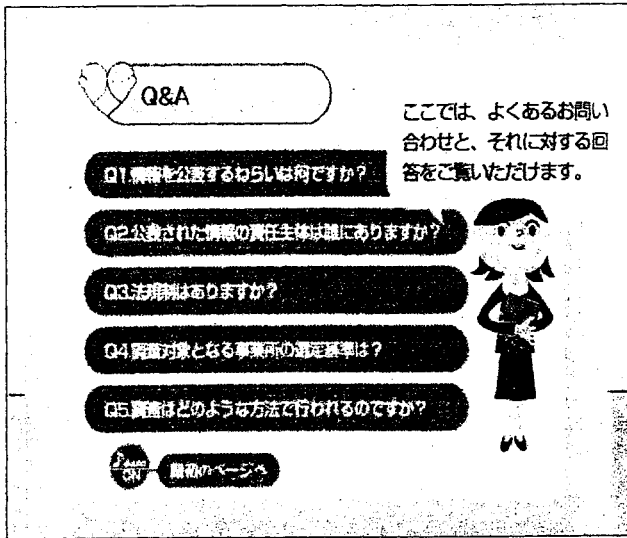 Q&A
ここでは、よくあるお問い
合わせと、それに対する回
答をご覧いただけます。
Q1.情報を公表するねらいは何ですか？
Q2.公表された情報の責任主体は誰にありますか？
Q3.法規制はありますか？
Q4.調査対象となる事業所の選定基準は？
Q5.調査はどのような方法で行われるのですか？
ON
最初のページへ